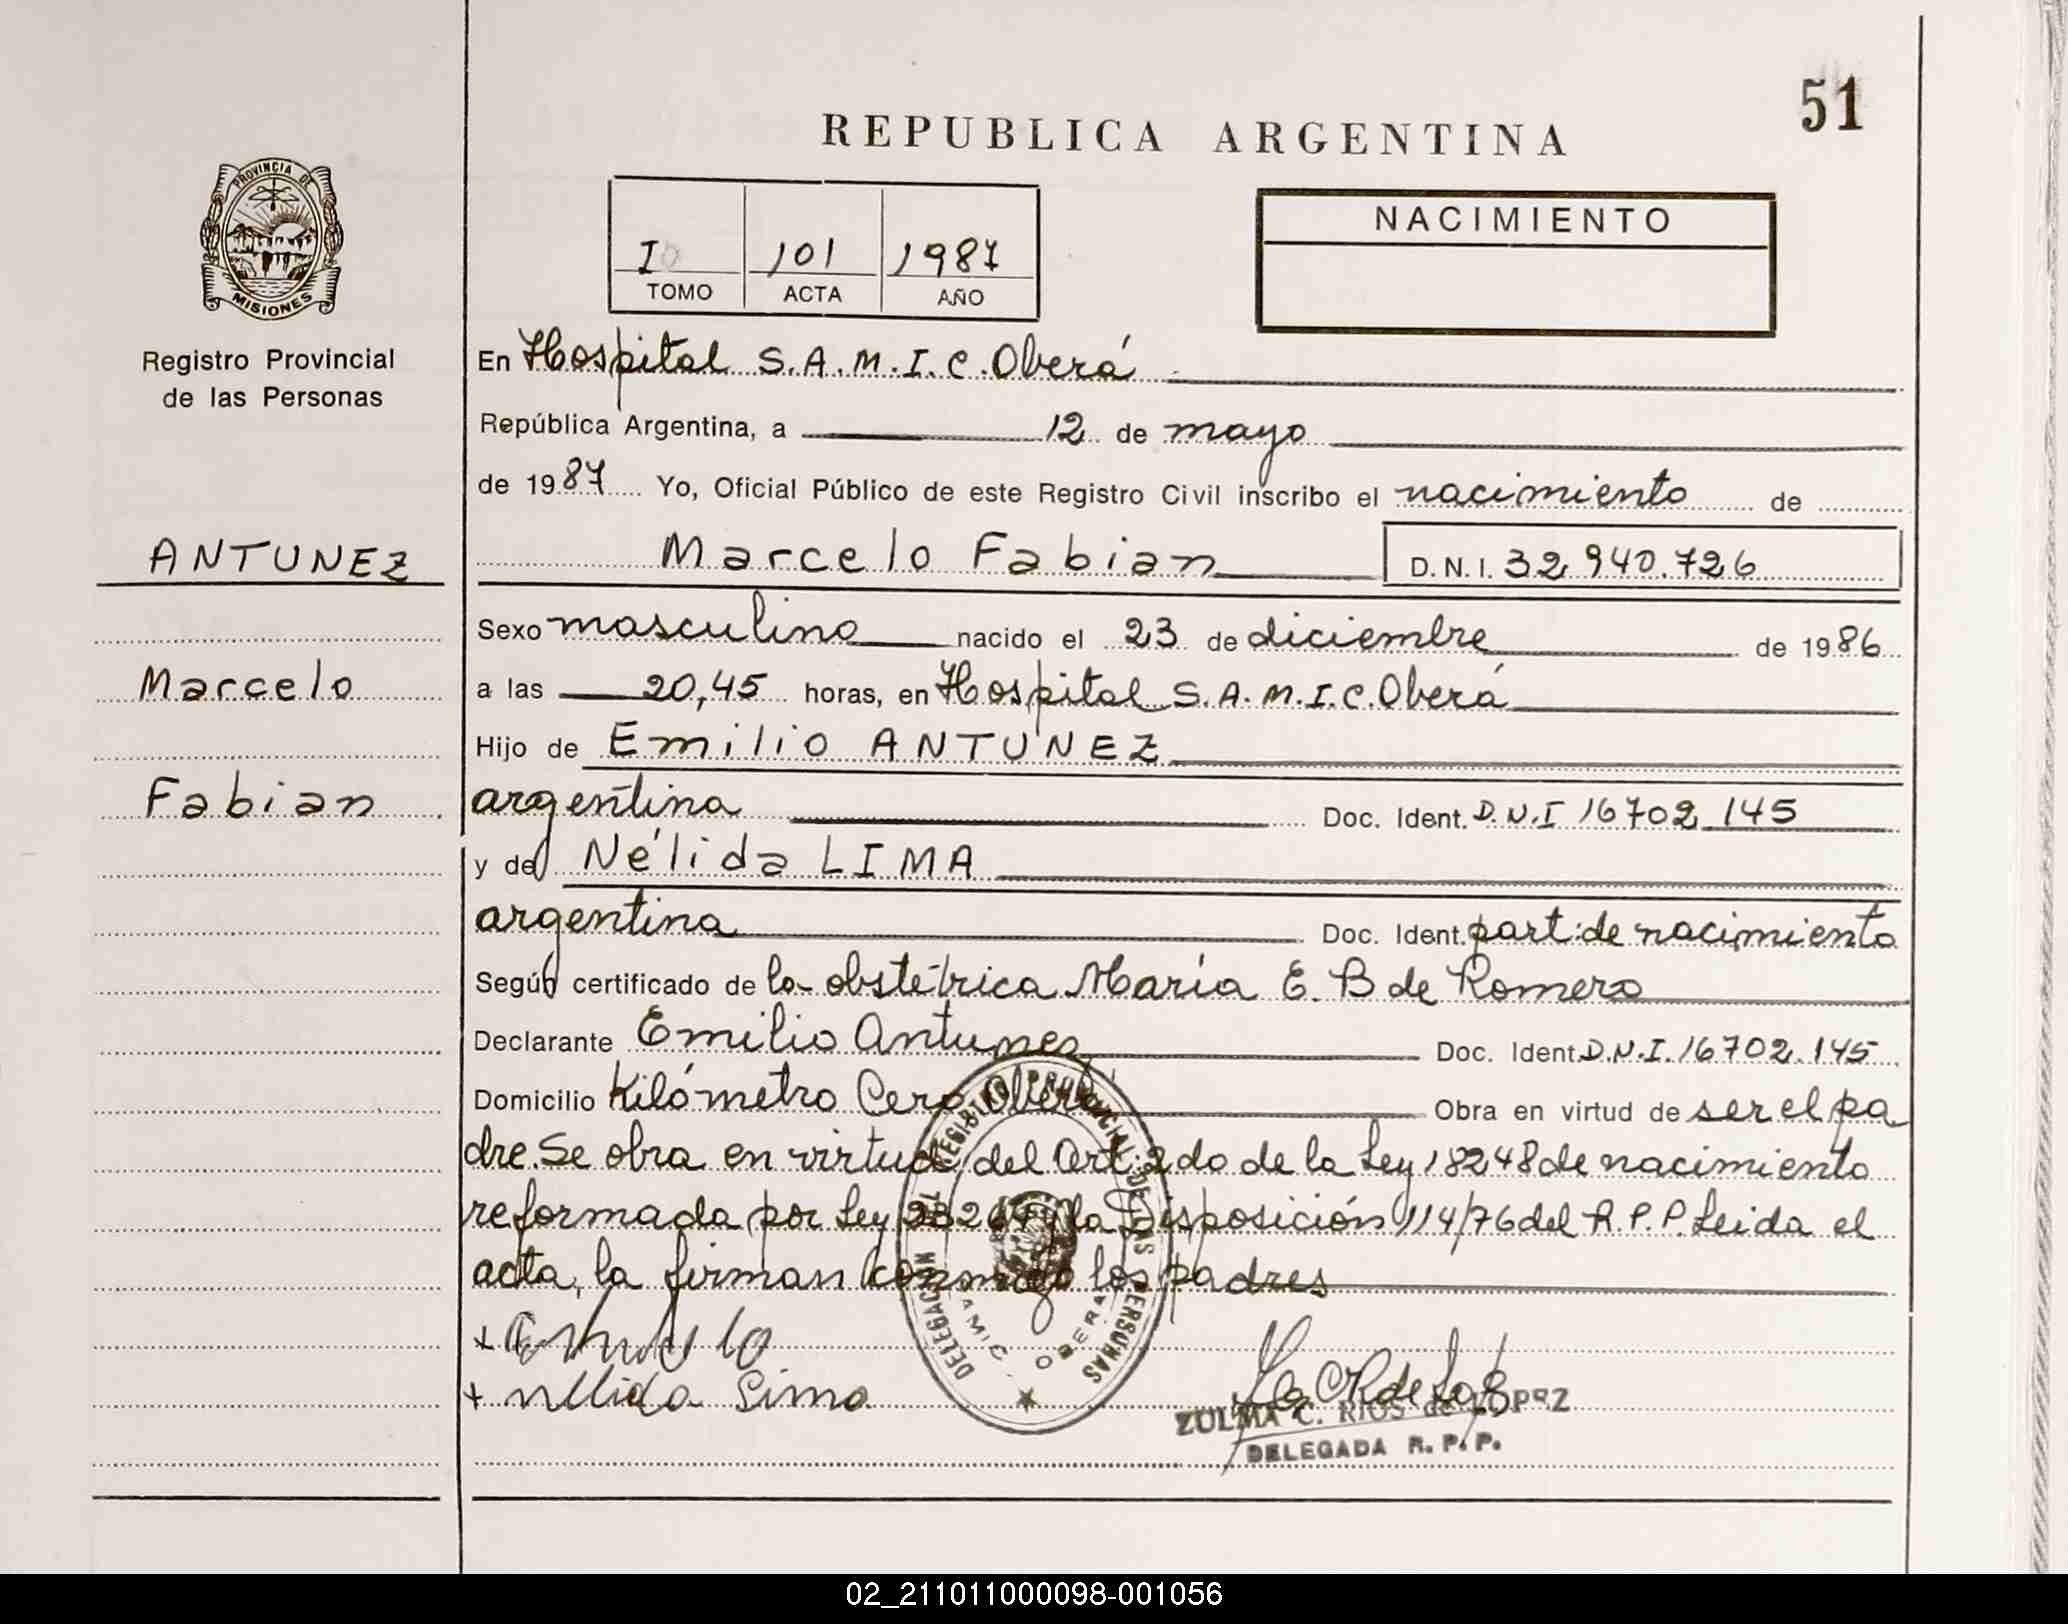 51
REPUBLICA ARGENTINA
PROVINCIA DE
MISIONES
Registro Provincial
de las Personas
I 101 1987
TOMO ACTA AÑO
NACIMIENTO
En Hospital S.A.M.I.C. Oberá
República Argentina, a 12 de mayo
de 1987 Yo, Oficial Público de este Registro Civil inscribo el nacimiento de
ANTUNEZ
Marcelo Fabian D.N.I. 32.940.726
Sexo masculino nacido el 23 de diciembre de 1986
Marcelo
a las 20,45 horas, en Hospital S.A.M.I.C. Oberá
Hijo de Emilio ANTUNEZ
Fabian
argentina Doc. Ident. D.N.I 16702.145
y de Nélida LIMA
argentina Doc. Ident. part. de nacimiento
Según certificado de la obstétrica María E. B de Romero
Declarante Emilio Antunez Doc. Ident D.N.I. 16702.145
Domicilio Kilómetro Cero Oberá Obra en virtud de ser el pa
dre. Se obra en virtud del Art. 2do de la Ley 18248 de nacimiento
reformada por Ley y la Disposición 114/76 del R.P.P. Leida el
acta, la firman conmigo los padres
+ Emilio
+ nllida Lima
DELEGACION REGISTRO PROVINCIAL DE LAS PERSONAS
SAMIC OBERA
ZULMA C. RIOS de LOPEZ
DELEGADA R. P. P.
02_211011000098-001056